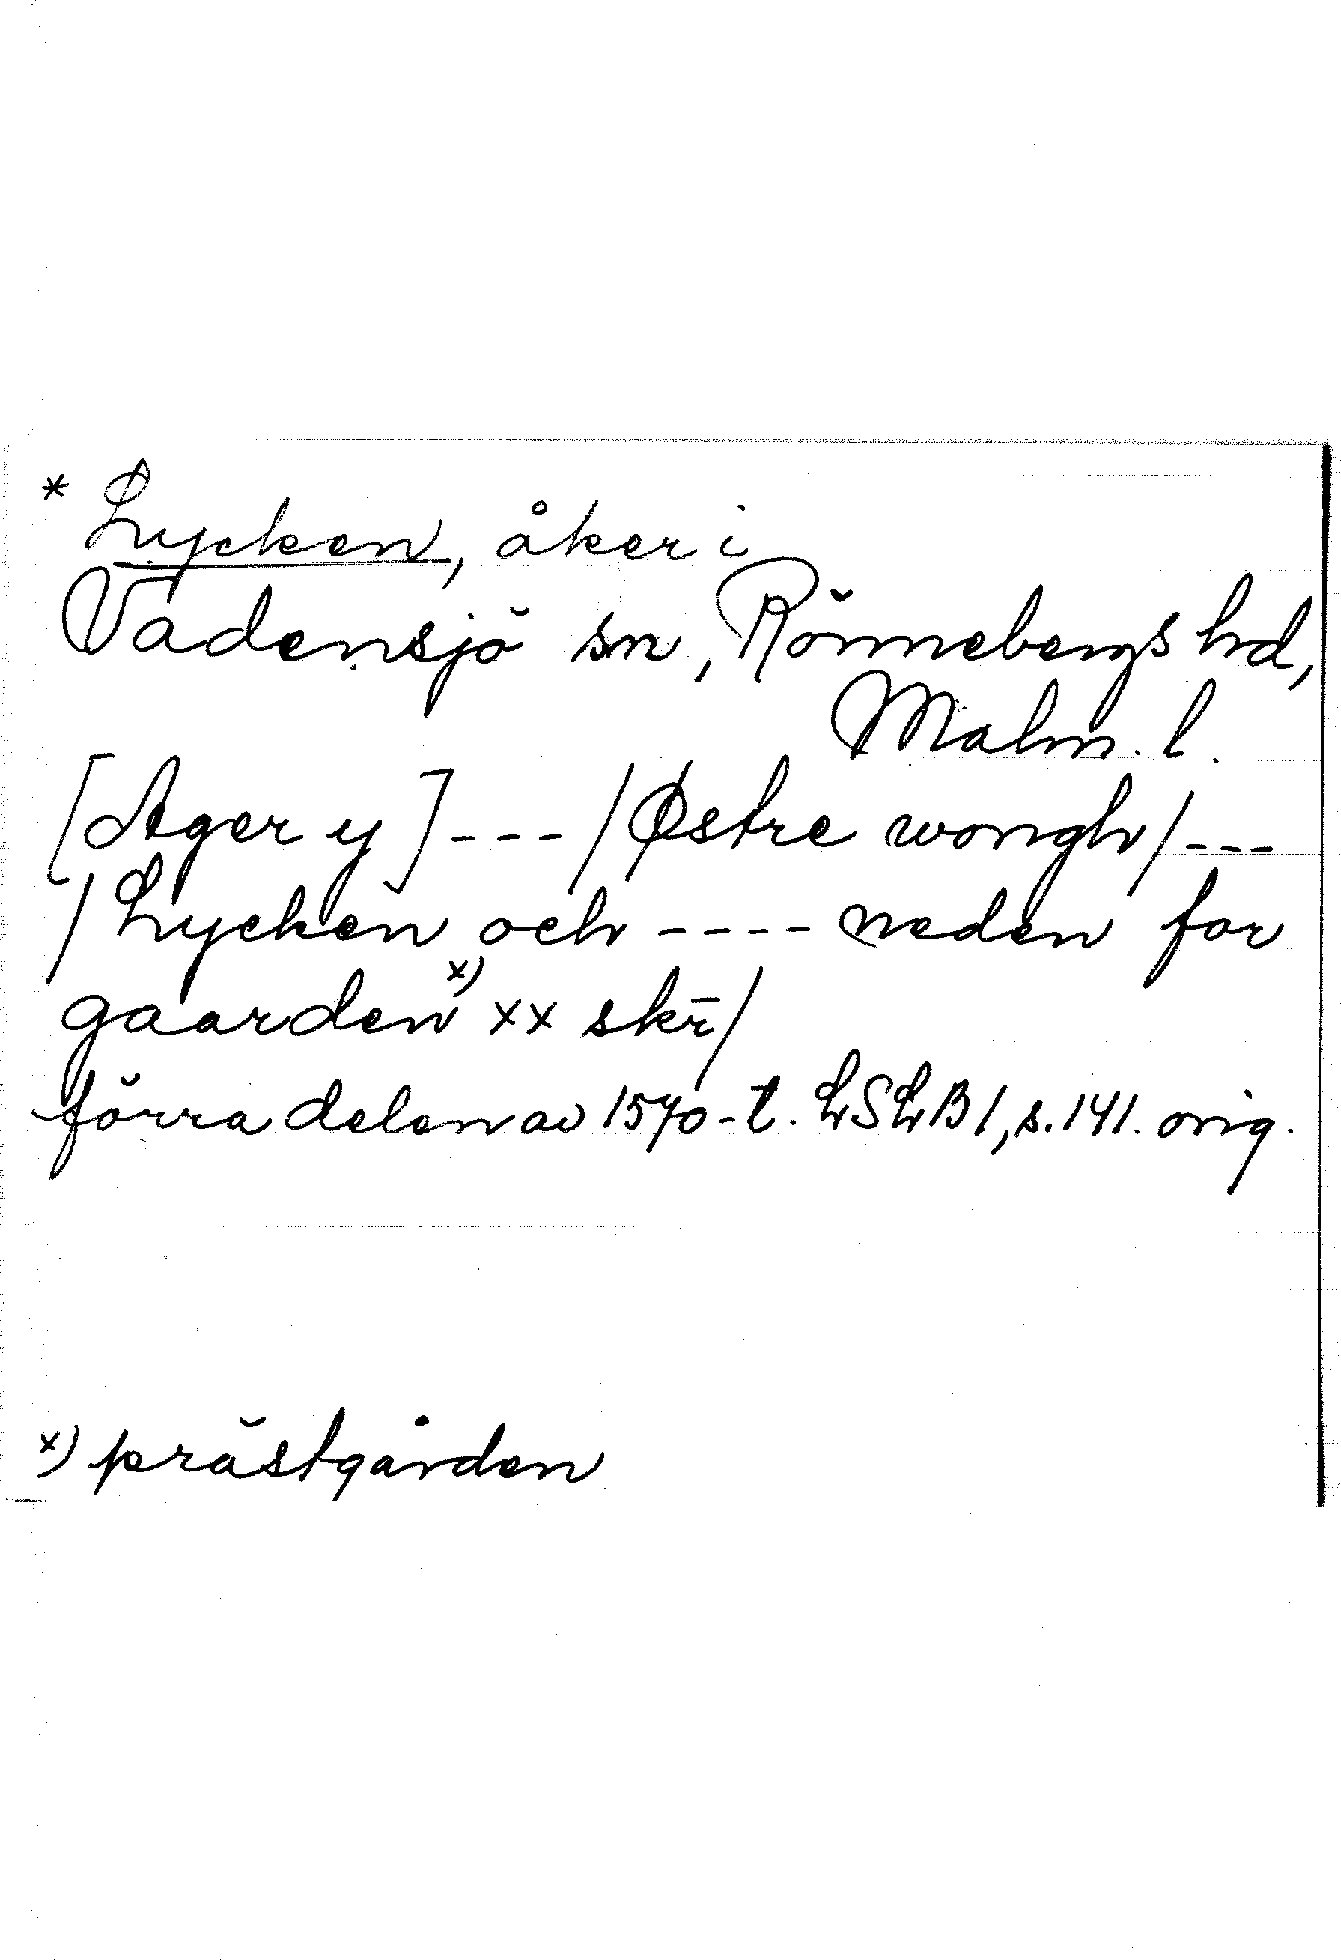 * Lycken, åker i
Vadensjö sn, Rönnebergs hd,
Malm. l.
[Ager y] --- /Østre wongh/ ---
/Lycken och ---- neden for
gaarden x) xx skr̄/
förra delen av 1570-t. LSLB 1, s. 141. orig.
x) prästgården